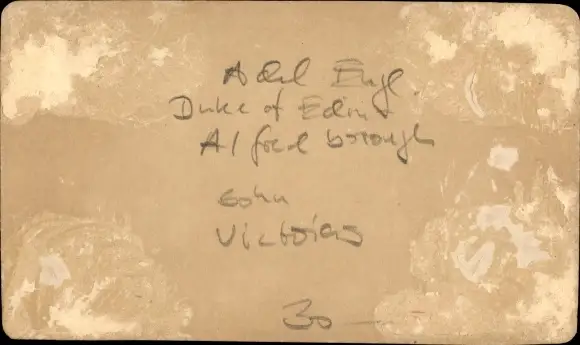 Adel Engl.
Duke of Edin-
Alfred borough
Sohn
Victorias
30